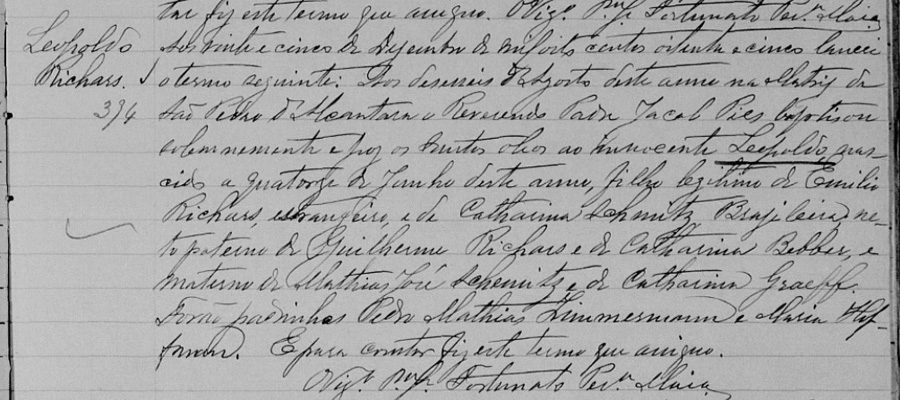 tar fiz este termo que assigno. Vigº. Fortunato Perª. Maia
Leopoldo
Richars.
334
Aos vinte e cinco de Dezembro de mil oito centos oitenta e cinco lancei
o termo seguinte: Aos deseseis d'Agosto deste anno na Matriz de
São Pedro d'Alcantara o Reverendo Padre Jacob Pies baptison
solemnemente e poz os Santos oleos ao innocente Leopoldo, nas-
cido a quatorze de Junho deste anno, filho legitimo de Emilio
Richars, estrangeiro, e de Catharina Schmitz, Brazileira; ne-
to paterno de Guilherme Richars e de Catharina Bebber, e
materno de Mathias José Schemitz e de Catharina Graeff.
Forão padrinhos Pedro Mathias Zimmermann e Maria Hof-
fmann. E para constar fiz este termo que assigno.
Vigº. Fortunato Perª. Maia